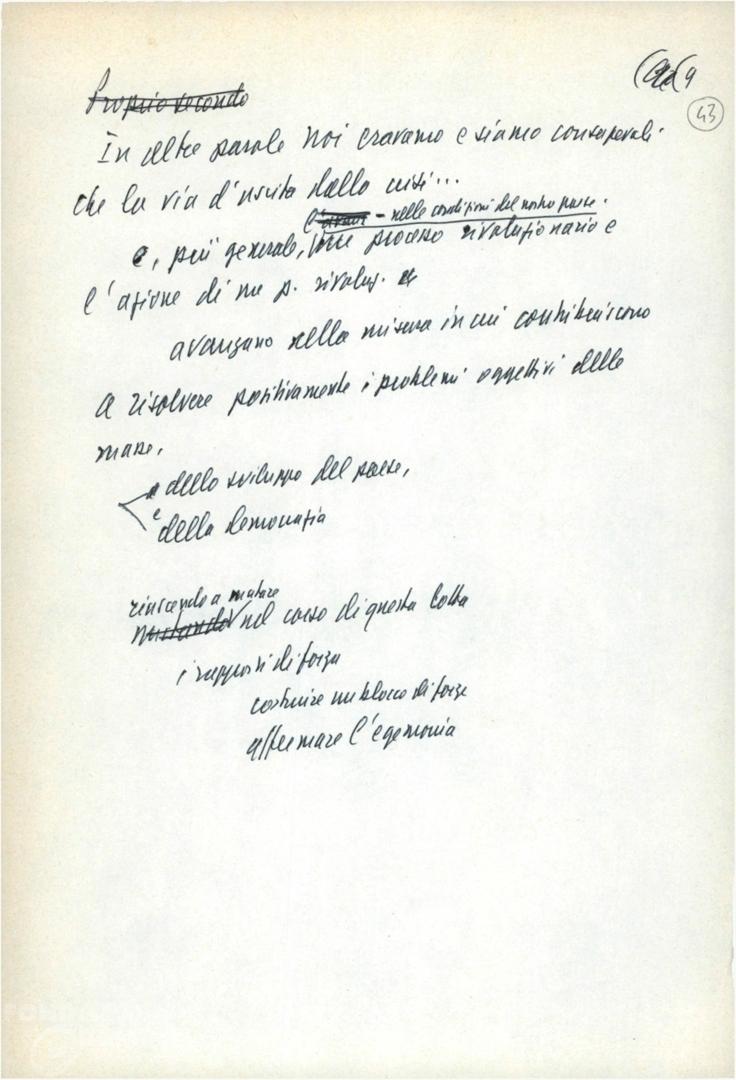 9
43
Proprio secondo
In altre parole noi eravamo e siamo consapevoli
che la via d'uscita dalla crisi...
- nelle condizioni del nostro paese.
e, più generale, processo rivoluzionario e
l'azione di un p. rivoluz.
avanzano nella misura in cui contribuiscono
a risolvere positivamente i problemi oggettivi delle
masse,
dello sviluppo del paese,
e
della democrazia
riuscendo a mutare
Mutando nel corso di questa lotta
i rapporti di forza
costruire un blocco di forze
affermare l'egemonia